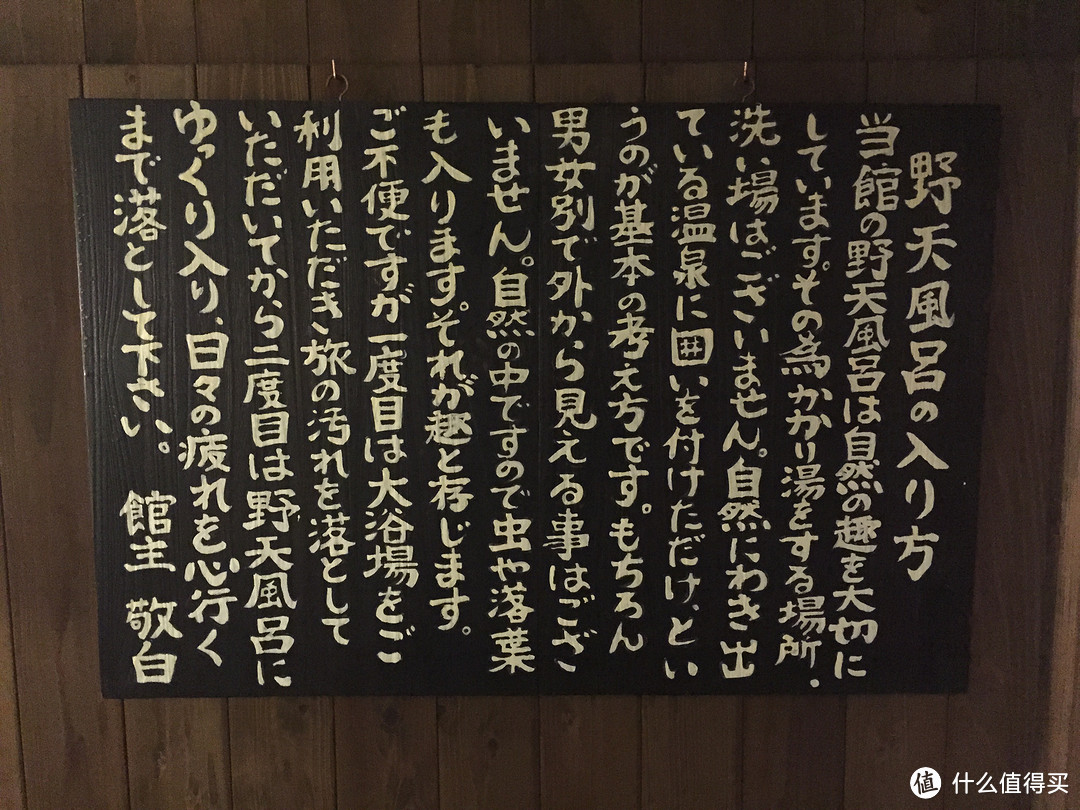 野天風呂の入り方
当館の野天風呂は自然の趣を大切に
しています。その為かかり湯をする場所・
洗い場はございません。自然にわき出
ている温泉に囲いを付けただけ、とい
うのが基本の考え方です。もちろん
男女別で外から見える事はござ
いません。自然の中ですので虫や落葉
も入ります。それが趣と存じます。
ご不便ですが一度目は大浴場をご
利用いただき旅の汚れを落として
いただいてから二度目は野天風呂に
ゆっくり入り、日々の疲れを心行く
まで落として下さい。 館主 敬白
值 什么值得买